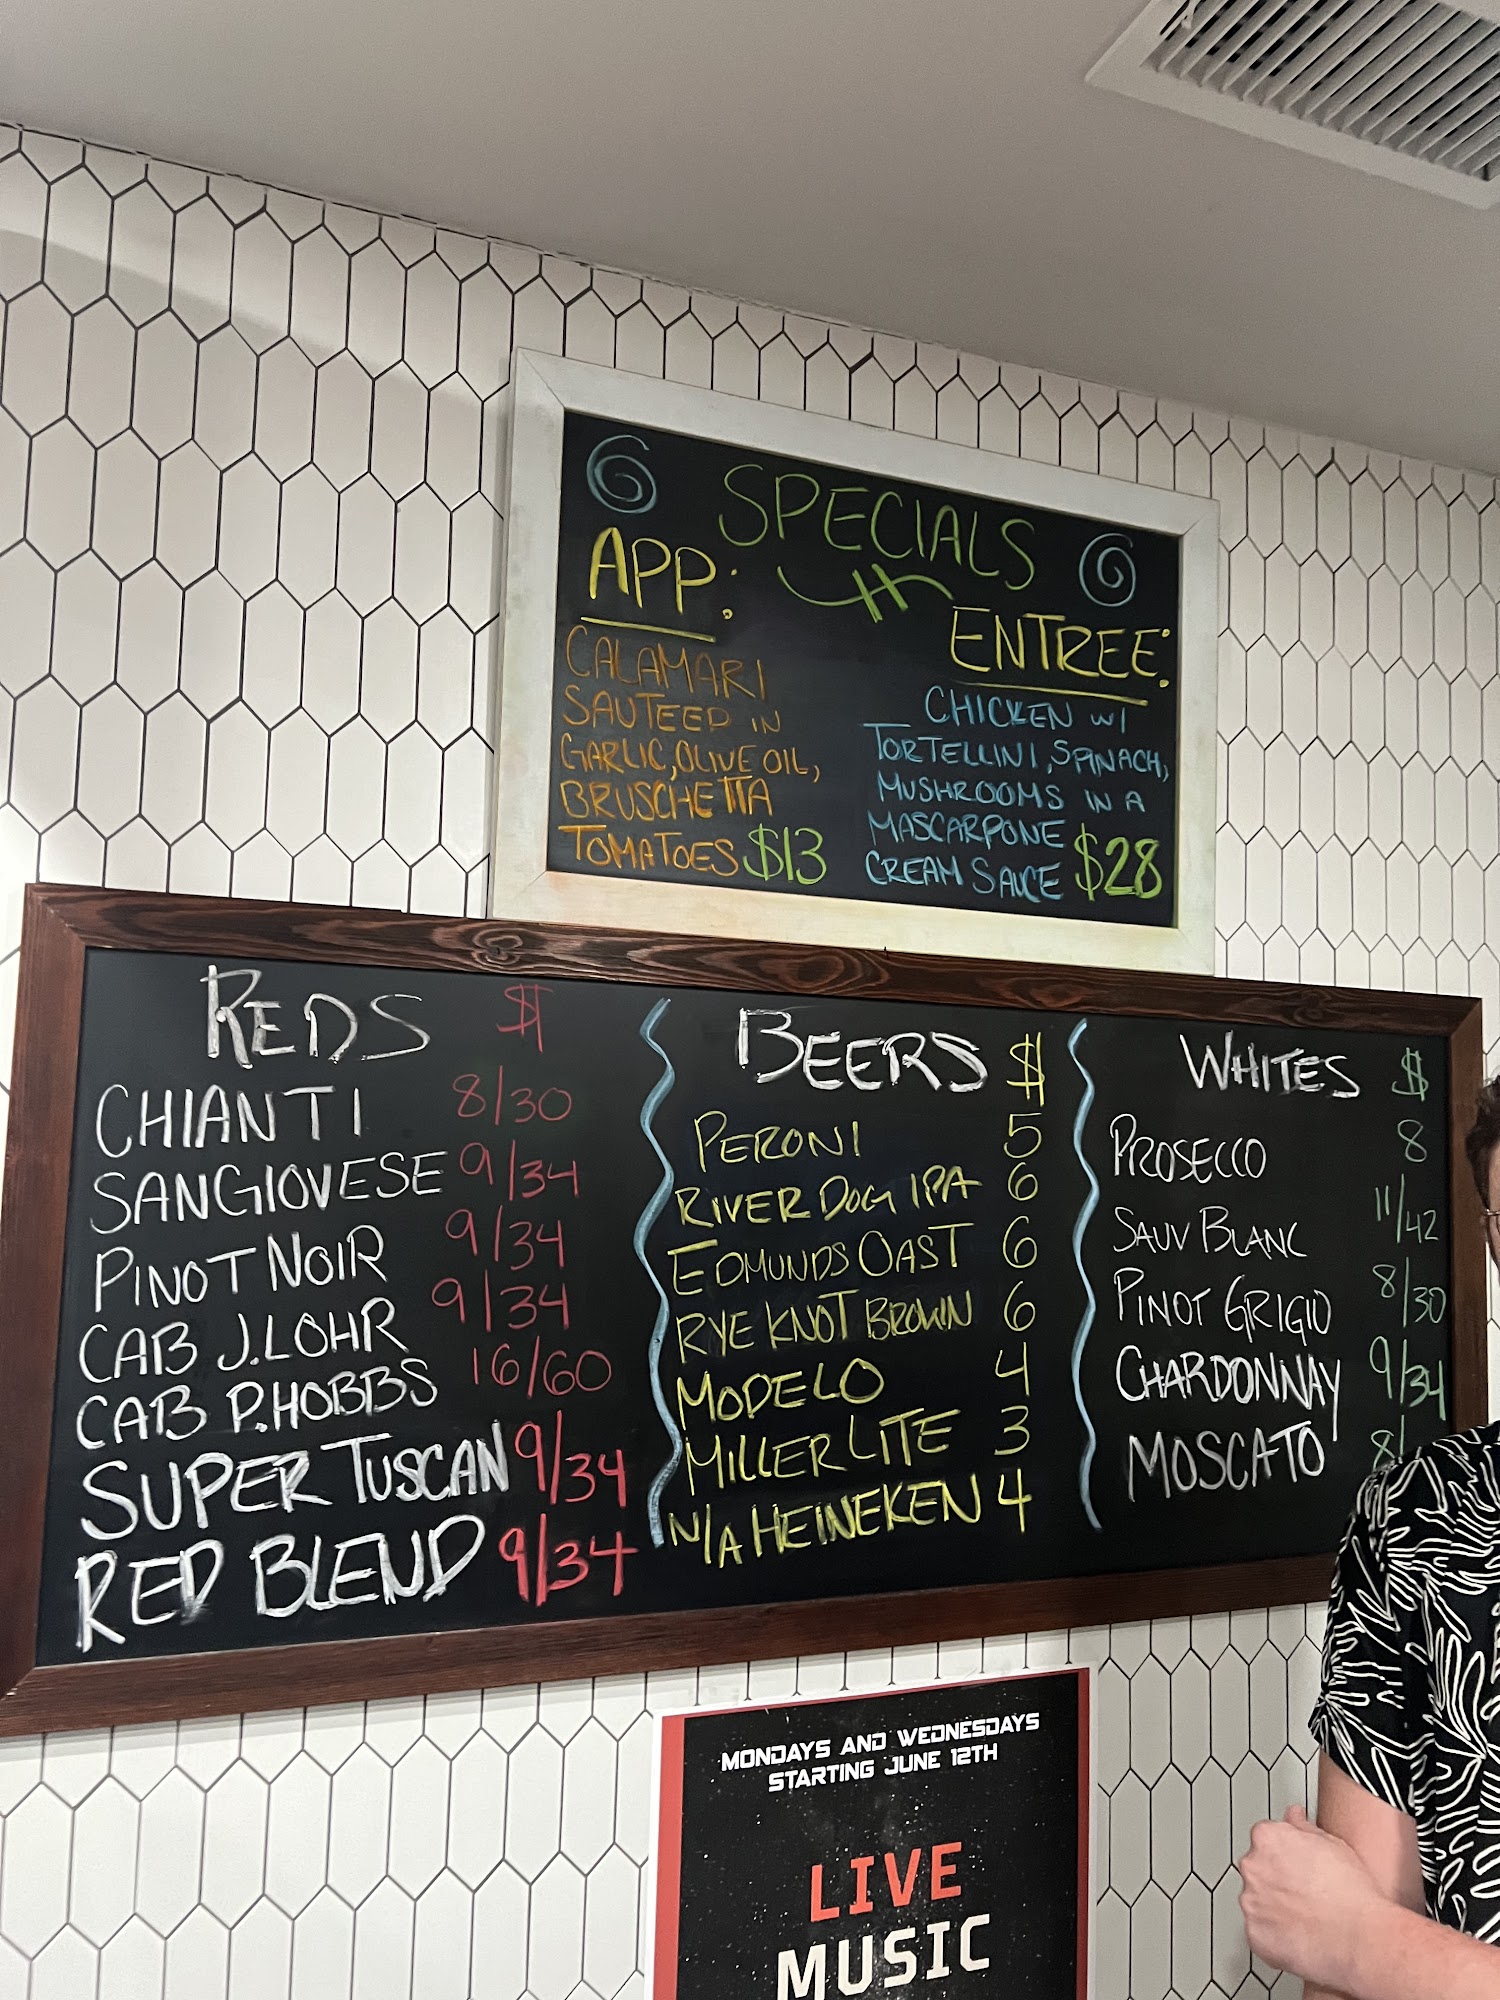 SPECIALS
APP:
CALAMARI
SAUTEED IN
GARLIC, OLIVE OIL,
BRUSCHETTA
TOMATOES $13
ENTREE:
CHICKEN W/
TORTELLINI, SPINACH,
MUSHROOMS IN A
MASCARPONE
CREAM SAUCE $28
REDS $
CHIANTI 8/30
SANGIOVESE 9/34
PINOT NOIR 9/34
CAB J.LOHR 9/34
CAB P.HOBBS 16/60
SUPER TUSCAN 9/34
RED BLEND 9/34
BEERS $
PERONI 5
RIVER DOG IPA 6
EDMUNDS OAST 6
RYE KNOT BROWN 6
MODELO 4
MILLER LITE 3
N/A HEINEKEN 4
WHITES $
PROSECCO 8
SAUV BLANC 11/42
PINOT GRIGIO 8/30
CHARDONNAY 9/34
MOSCATO 8/
MONDAYS AND WEDNESDAYS
STARTING JUNE 12TH
LIVE
MUSIC